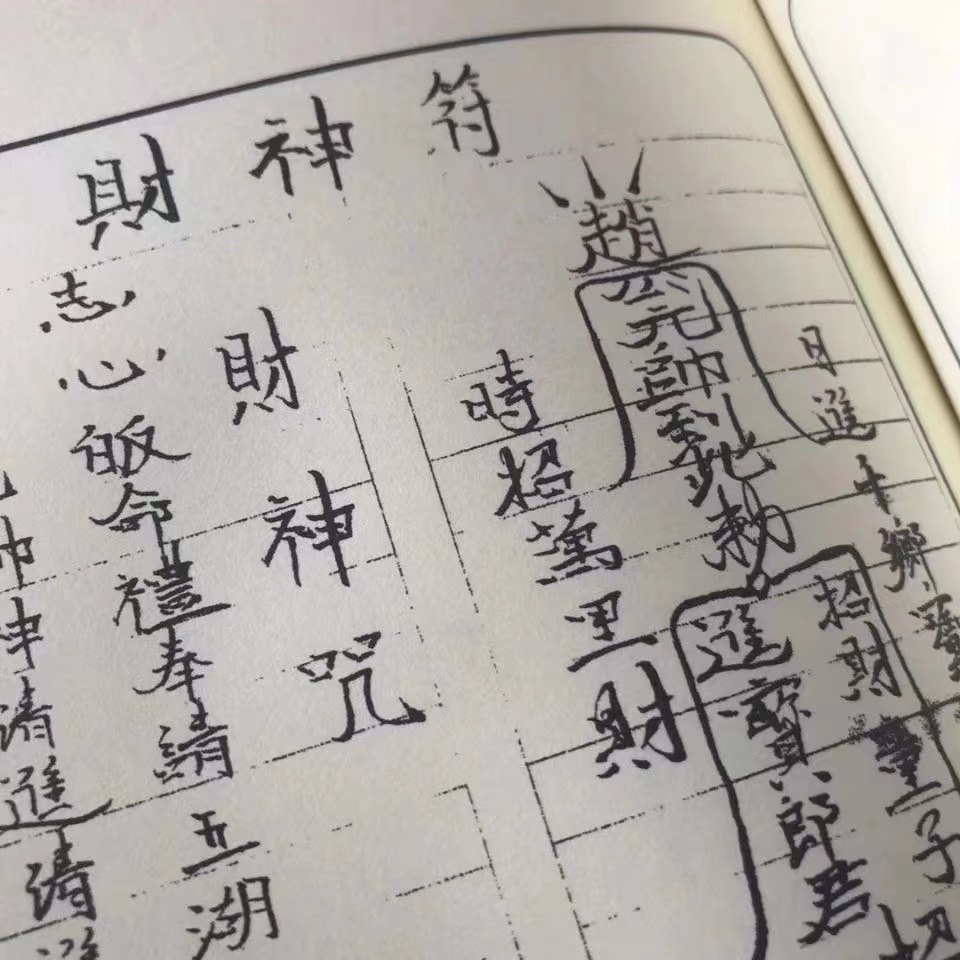 財神符
趙
公元帥到此
敕
日進千鄉寶
時招萬里財
招財童子
招
進寶郎君
財神咒
志心皈命禮奉請五湖
帥神請進
請進